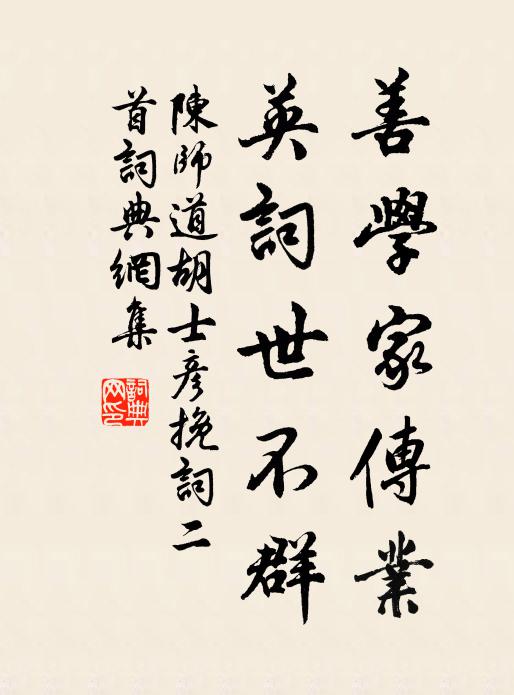 善學家傳業
英詞世不群
陳師道胡士彥挽詞二
首詞典網集
詞典
网印